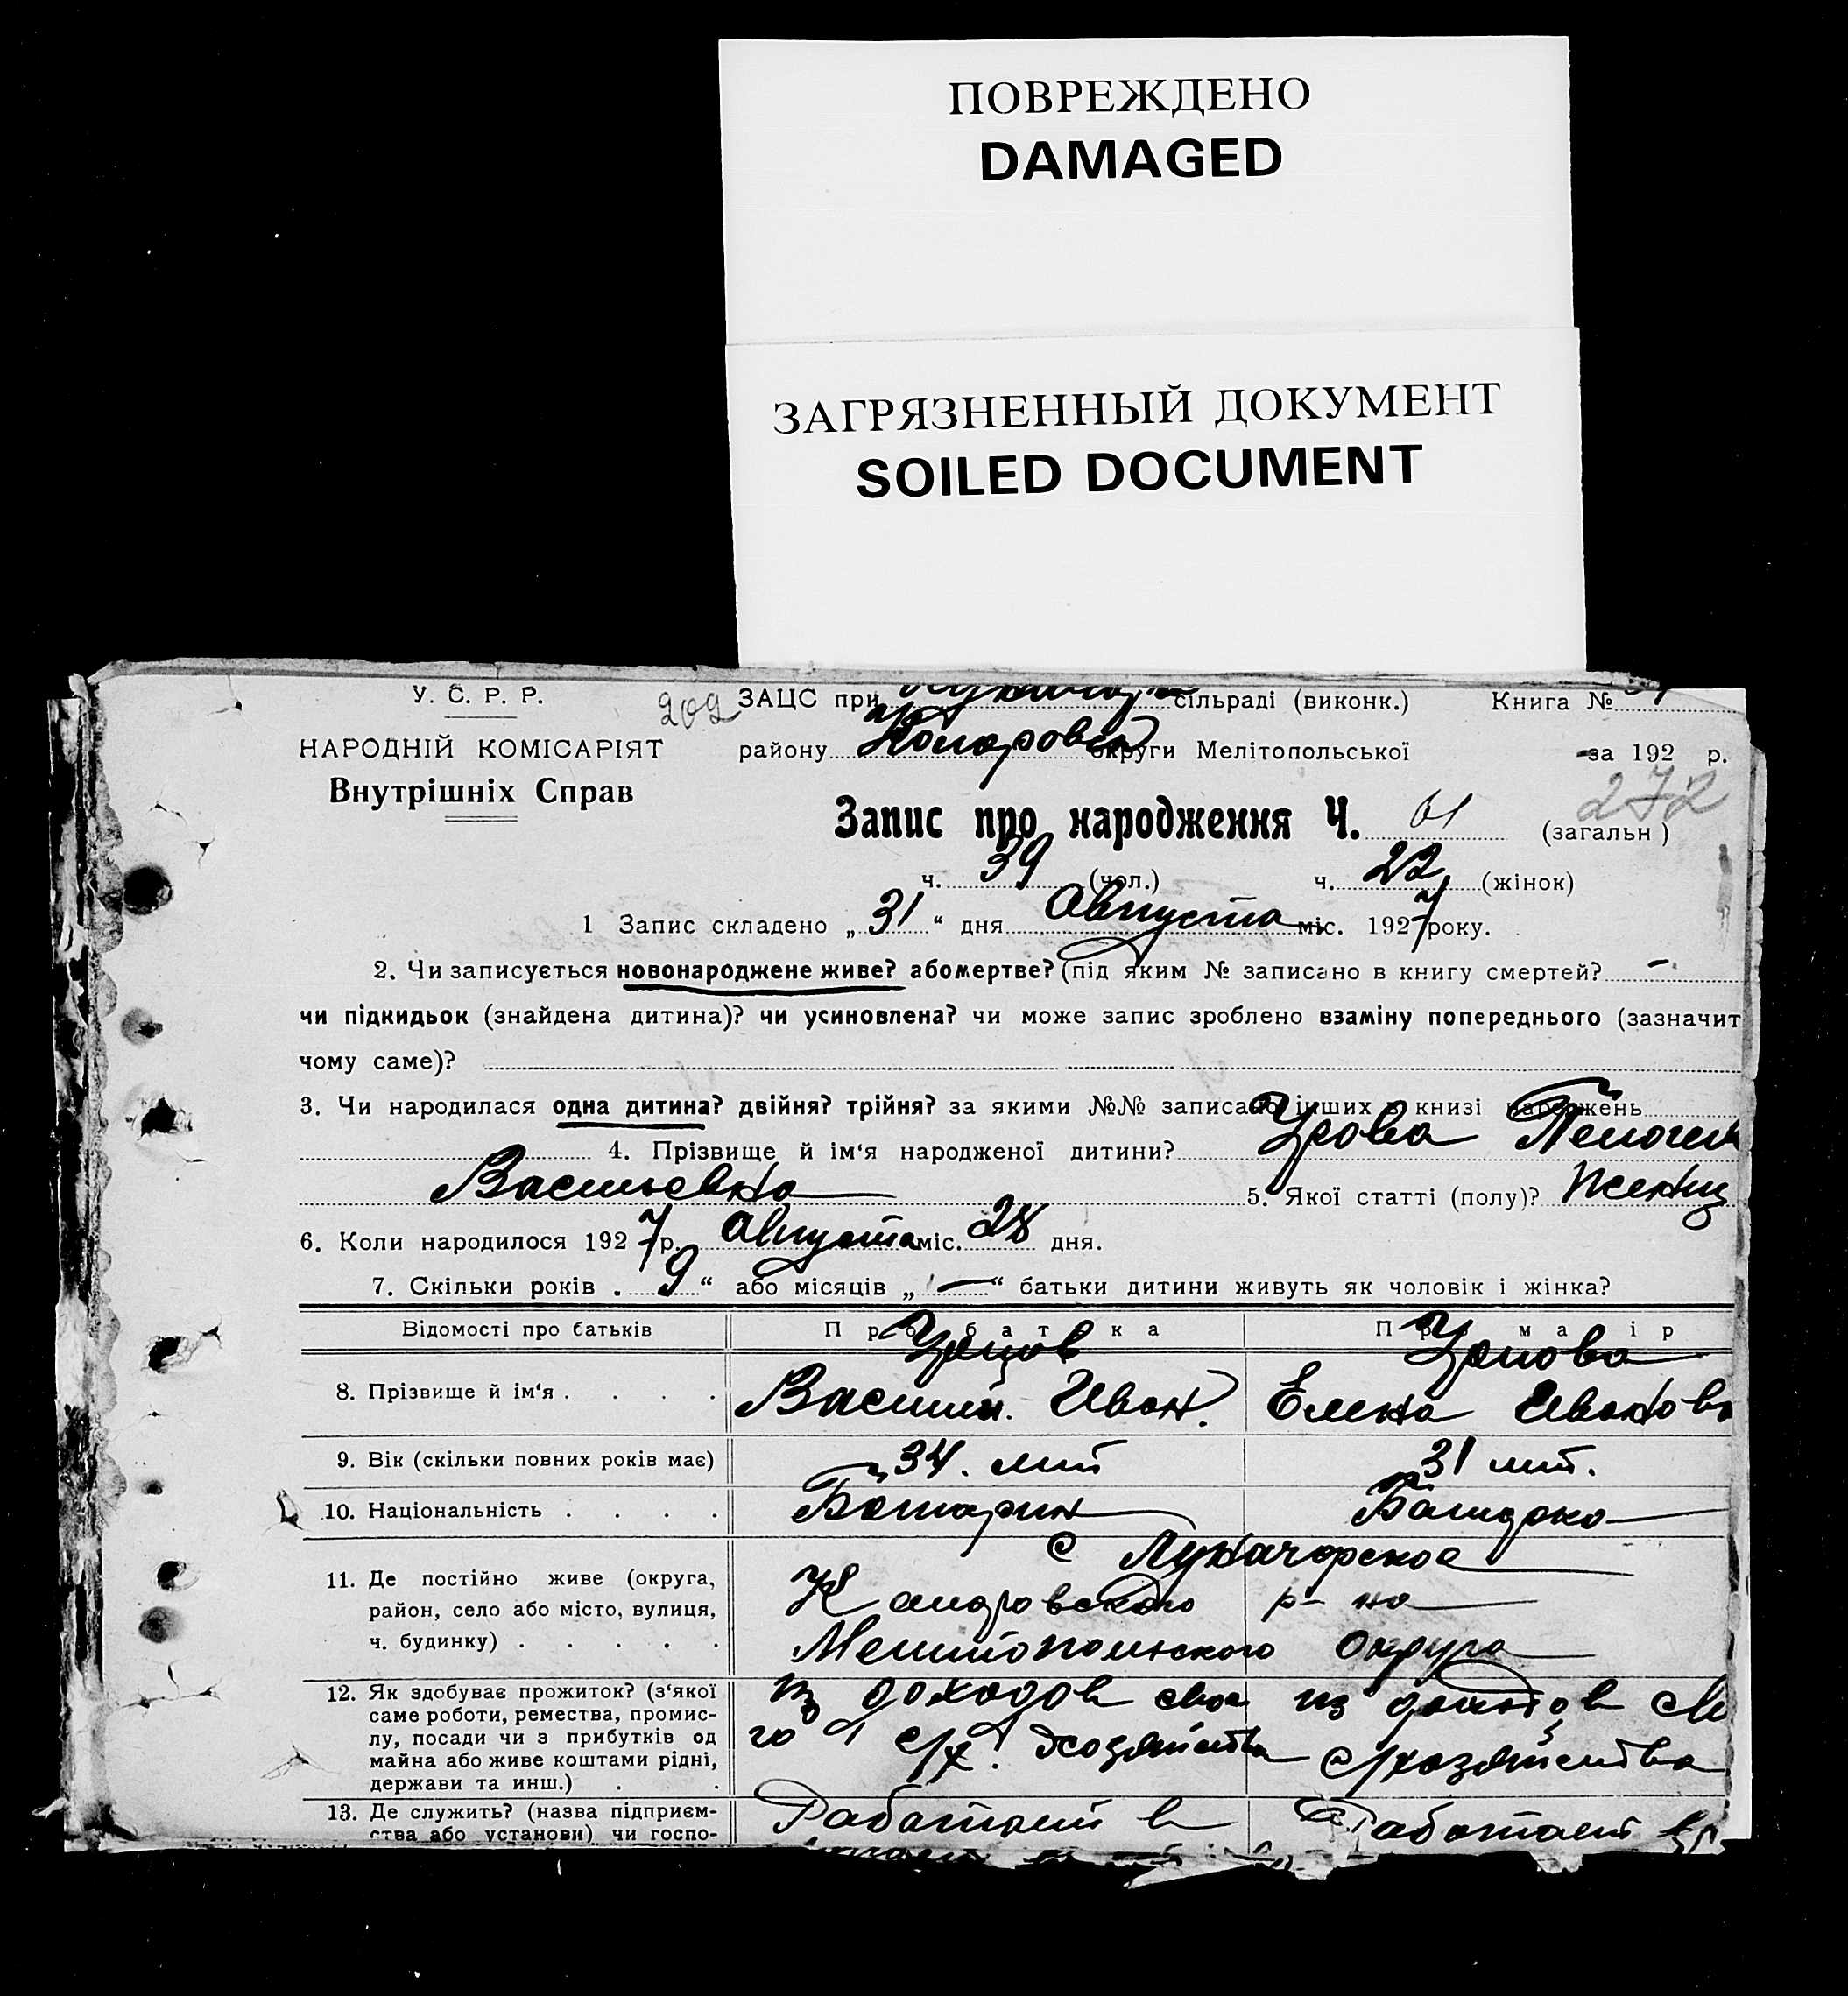 ПОВРЕЖДЕНО
DAMAGED
ЗАГРЯЗНЕННЫЙ ДОКУМЕНТ
SOILED DOCUMENT
У. С. Р. Р.
НАРОДНІЙ КОМІСАРІЯТ
Внутрішніх Справ
209
ЗАЦС при сільраді (виконк.) Книга №
району округи Мелітопольської за 192 р.
272
Запис про народження Ч. 61 (загальн)
ч. 39 (чол.) ч. 22 (жінок)
1 Запис складено „31“ дня Августа міс. 1927 року.
2. Чи записується новонароджене живе? або мертве? (під яким № записано в книгу смертей? -
чи підкидьок (знайдена дитина)? чи усиновлена? чи може запис зроблено взаміну попереднього (зазначит
чому саме)?
3. Чи народилася одна дитина? двійня? трійня? за якими №№ записано інших в книзі народжень
4. Прізвище й ім‘я народженої дитини?
Васильевна 5. Якої статті (полу)?
6. Коли народилося 1927 р. Августа міс. 28 дня.
7. Скільки років „9“ або місяців „—“ батьки дитини живуть як чоловік і жінка?
Відомості про батьків Про батка Про матір
8. Прізвище й ім‘я . . . . Василий Иван. Елена Иванова
9. Вік (скільки повних років має) 34. лит 31 лит.
10. Національність . . . .
с Луначарское
11. Де постійно живе (округа,
район, село або місто, вулиця,
ч. будинку) . . . . .
р-на
Мелитопольского округа
12. Як здобуває прожиток? (з‘якої
саме роботи, ремества, промис-
лу, посади чи з прибутків од
майна або живе коштами рідні,
держави та инш.) . .
из доходов свое
го с/х. хозяйства
из доходов
с/хозяйства
13. Де служить? (назва підприєм-
ства або установи) чи госпо-
Работает в
Работает в